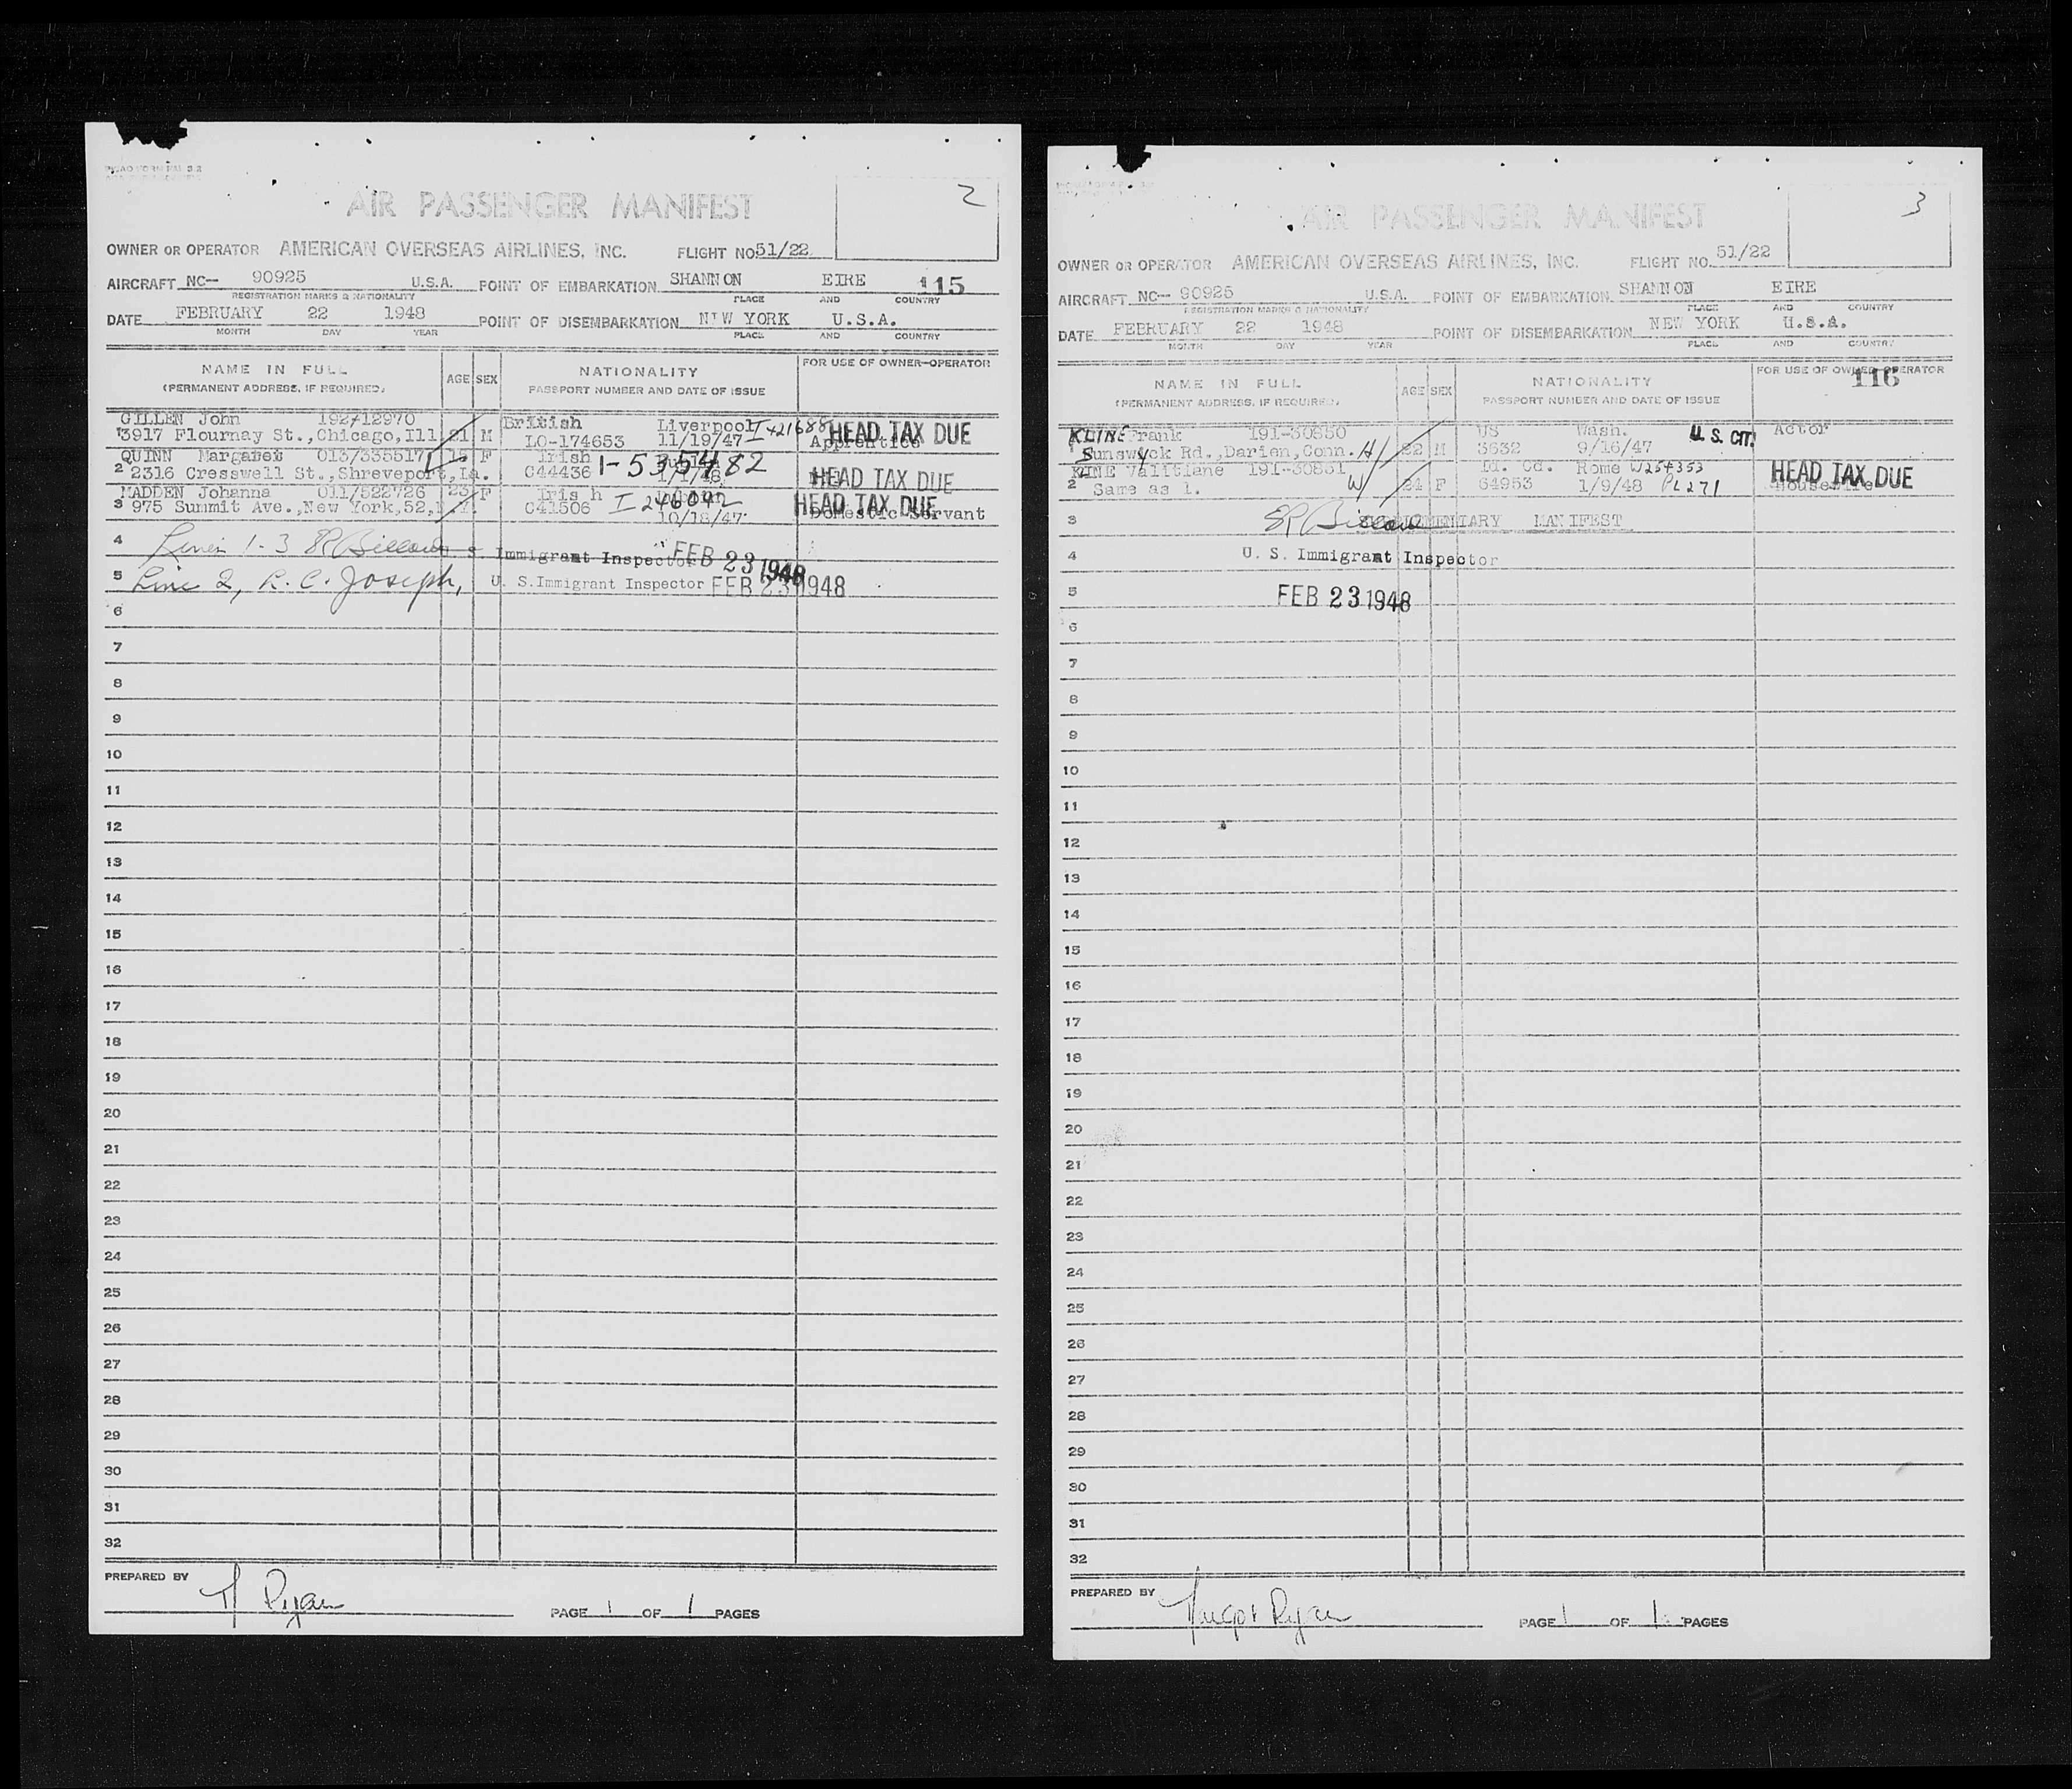 2
AIR PASSENGER MANIFEST
OWNER OR OPERATOR AMERICAN OVERSEAS AIRLINES, INC. FLIGHT NO 51/22
AIRCRAFT NC- 90925 U.S.A. POINT OF EMBARKATION SHANNON EIRE 115
REGISTRATION MARKS & NATIONALITY PLACE AND COUNTRY
DATE FEBRUARY 22 1948 POINT OF DISEMBARKATION NEW YORK U.S.A.
MONTH DAY YEAR PLACE AND COUNTRY
NAME IN FULL AGE SEX NATIONALITY FOR USE OF OWNER-OPERATOR
(PERMANENT ADDRESS, IF REQUIRED) PASSPORT NUMBER AND DATE OF ISSUE
GILLEN John 192/12970 British Liverpool I421688
1 3917 Flournay St., Chicago, Ill 21 M LO-174653 11/19/47 Apprentice HEAD TAX DUE
QUINN Margaret 013/335517 F Irish
2 2316 Cresswell St., Shreveport, La. C44436 1-535482 HEAD TAX DUE
MADDEN Johanna 011/522726 F Irish
3 975 Summit Ave., New York, 52, C41506 I 246042 10/18/47 Domestic Servant HEAD TAX DUE
4 Lines 1-3 Immigrant Inspector FEB 23 1948
5 Line 2, R. C. Joseph, U. S. Immigrant Inspector FEB 23 1948
6
7
8
9
10
11
12
13
14
15
16
17
18
19
20
21
22
23
24
25
26
27
28
29
30
31
32
PREPARED BY
M Ryan
PAGE 1 OF 1 PAGES
3
AIR PASSENGER MANIFEST
OWNER OR OPERATOR AMERICAN OVERSEAS AIRLINES, INC. FLIGHT NO. 51/22
AIRCRAFT NC- 90925 U.S.A. POINT OF EMBARKATION SHANNON EIRE
REGISTRATION MARKS & NATIONALITY PLACE AND COUNTRY
DATE FEBRUARY 22 1948 POINT OF DISEMBARKATION NEW YORK U.S.A.
MONTH DAY YEAR PLACE AND COUNTRY
NAME IN FULL AGE SEX NATIONALITY FOR USE OF OWNER-OPERATOR
116
(PERMANENT ADDRESS, IF REQUIRED) PASSPORT NUMBER AND DATE OF ISSUE
KLINE Frank 191-30850 US Wash. U.S. CIT. Actor
1 Sunswyck Rd., Darien, Conn. H 22 M 3632 9/16/47
191-30851 Id. Cd. Rome W254353
2 Same as 1. W 24 F 64953 1/9/48 PL271 Housewife HEAD TAX DUE
3 MANIFEST
4 U. S. Immigrant Inspector
5 FEB 23 1948
6
7
8
9
10
11
12
13
14
15
16
17
18
19
20
21
22
23
24
25
26
27
28
29
30
31
32
PREPARED BY
Margot Ryan
PAGE 1 OF 1 PAGES